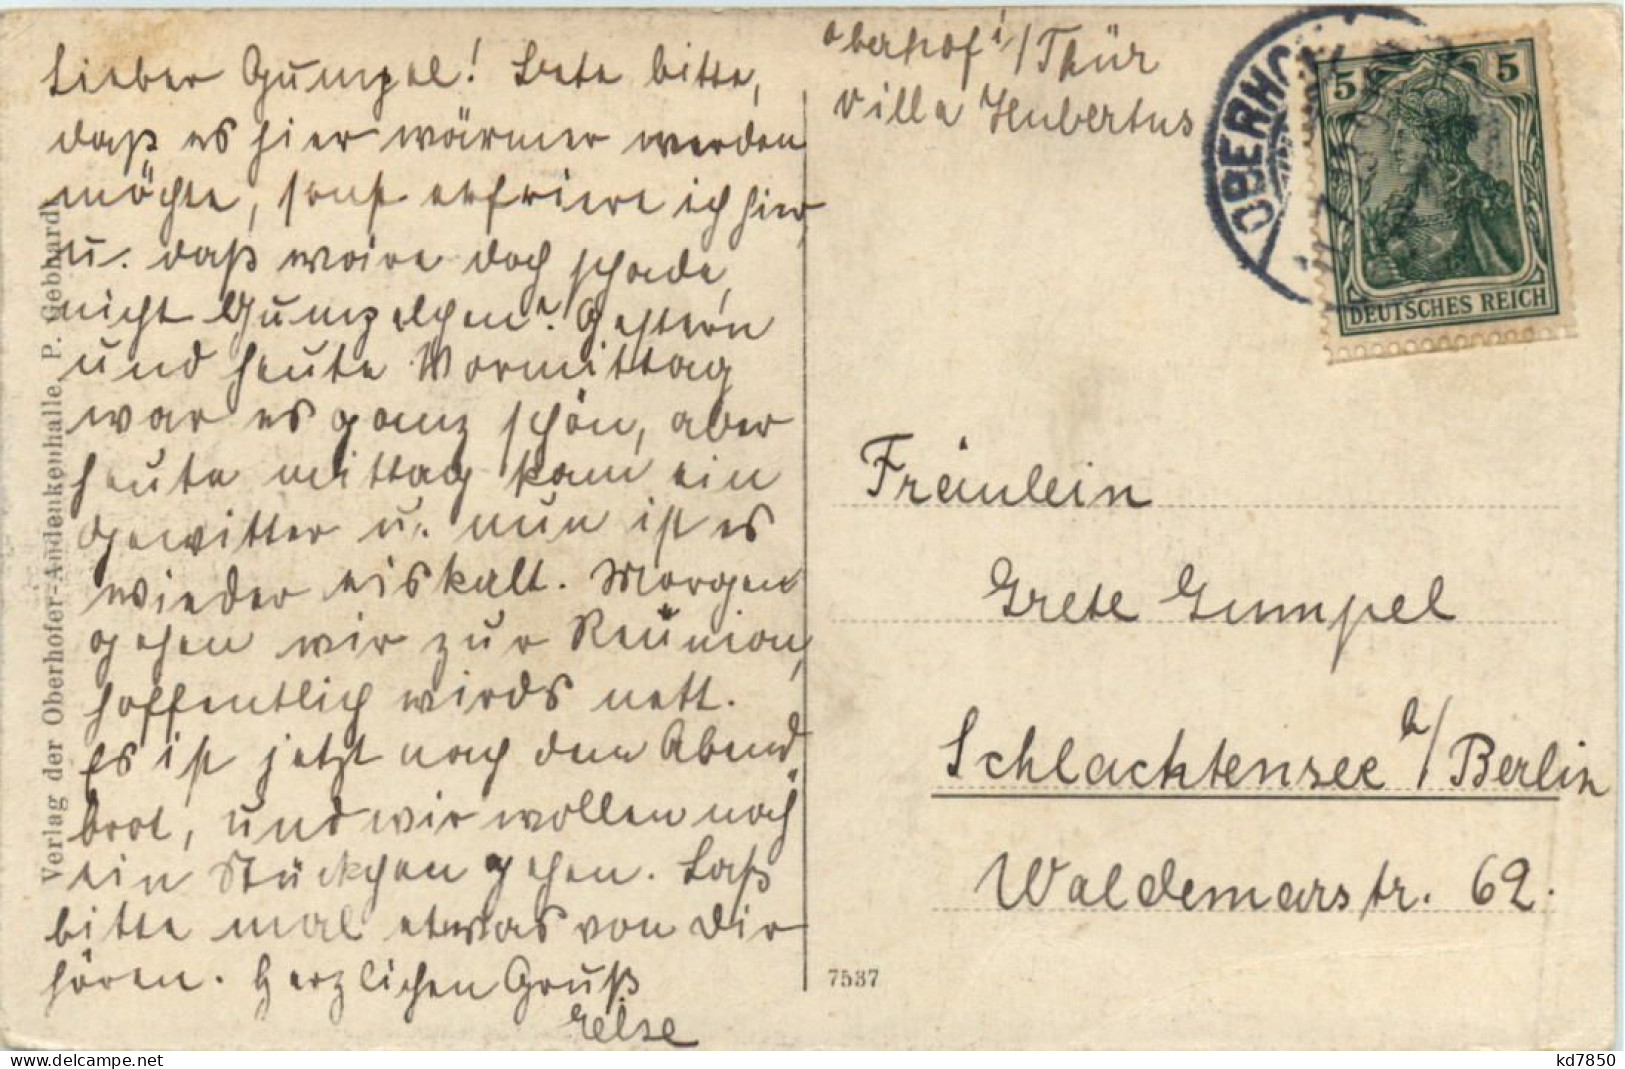 Lieber Gumpel! Bete bitte,
daß es hier wärmer werden
möchte, sonst erfriere ich hier,
u. daß wäre doch schade,
nicht Gumpelchen? Gestern
und heute Vormittag
war es ganz schön, aber
heute mittag kam ein
Gewitter u. nun ist es
wieder eiskalt. Morgen
gehen wir zur Reunion,
hoffentlich wirds nett.
Es ist jetzt nach dem Abend
brot, und wir wollen noch
ein Stückchen gehen. Laß
bitte mal etwas von Dir
hören. Herzlichen Gruß
Else
Verlag der Oberhofer-Andenkenhalle, P. Gebhardt
Oberhof i/Thür
Villa Hubertus
OBERHO
5 5
DEUTSCHES REICH
Fräulein
Grete Gumpel
Schlachtensee b/Berlin
Waldemarstr. 62.
7537
kd7850
www.delcampe.net